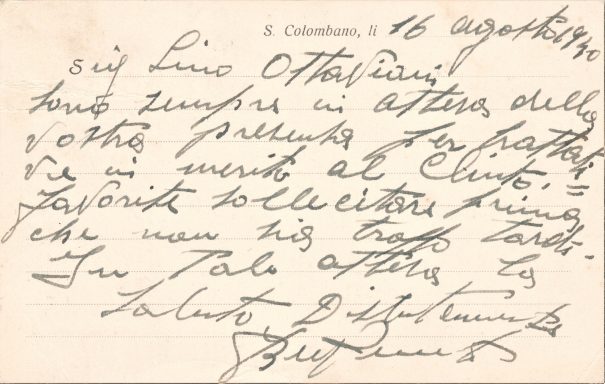 S. Colombano, li 16 agosto 1940
Sig Lino Ottaviani
sono sempre in attesa della
vostra presenza per trattati
ve in merito al Clinto. =
Favorite sollecitare prima
che non sia troppo tardi.
In Tale attesa La
Saluto Distintamente